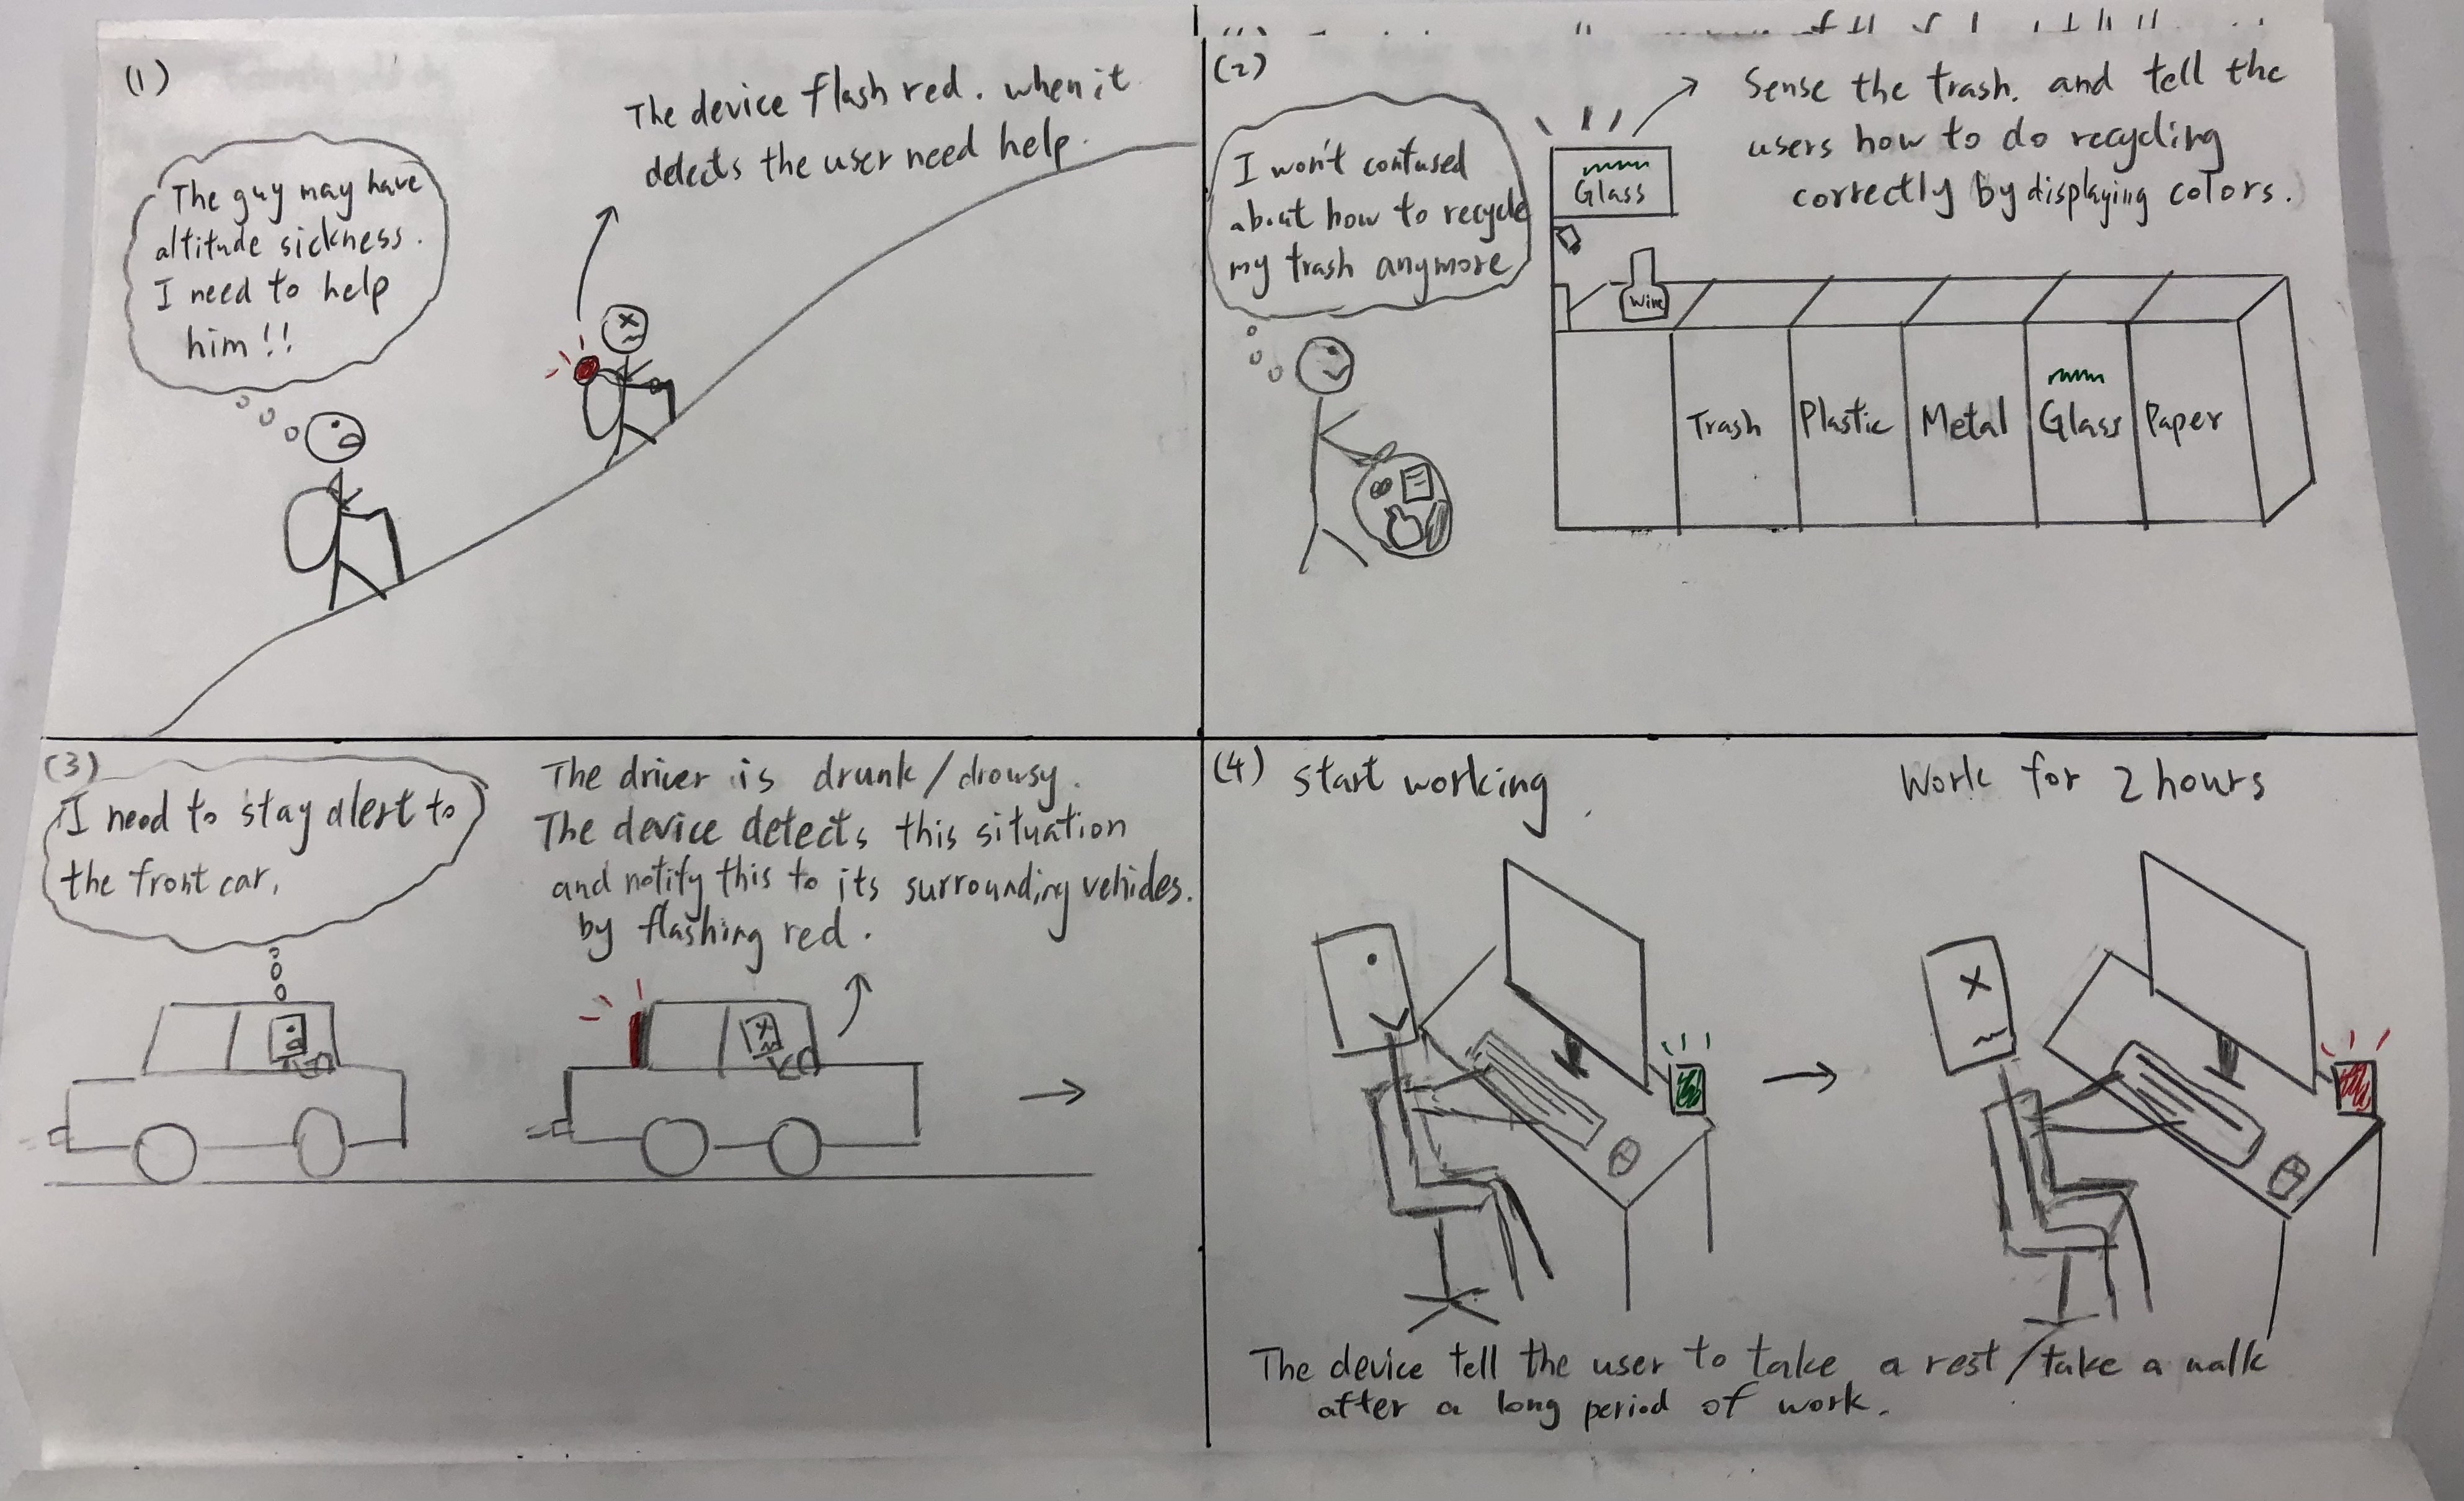 (1)
The device flash red. when it
detects the user need help.
The guy may have
altitude sickness.
I need to help
him!!
(2)
Sense the trash. and tell the
users how to do recycling
correctly by displaying colors.
I won't confused
about how to recycle
my trash anymore
Glass
Wine
Trash
Plastic
Metal
Glass
Paper
(3)
I need to stay alert to
the front car.
The driver is drunk/drowsy.
The device detects this situation
and notify this to its surrounding vehicles.
by flashing red.
(4) start working
Work for 2 hours
The device tell the user to take a rest/take a walk
after a long period of work.